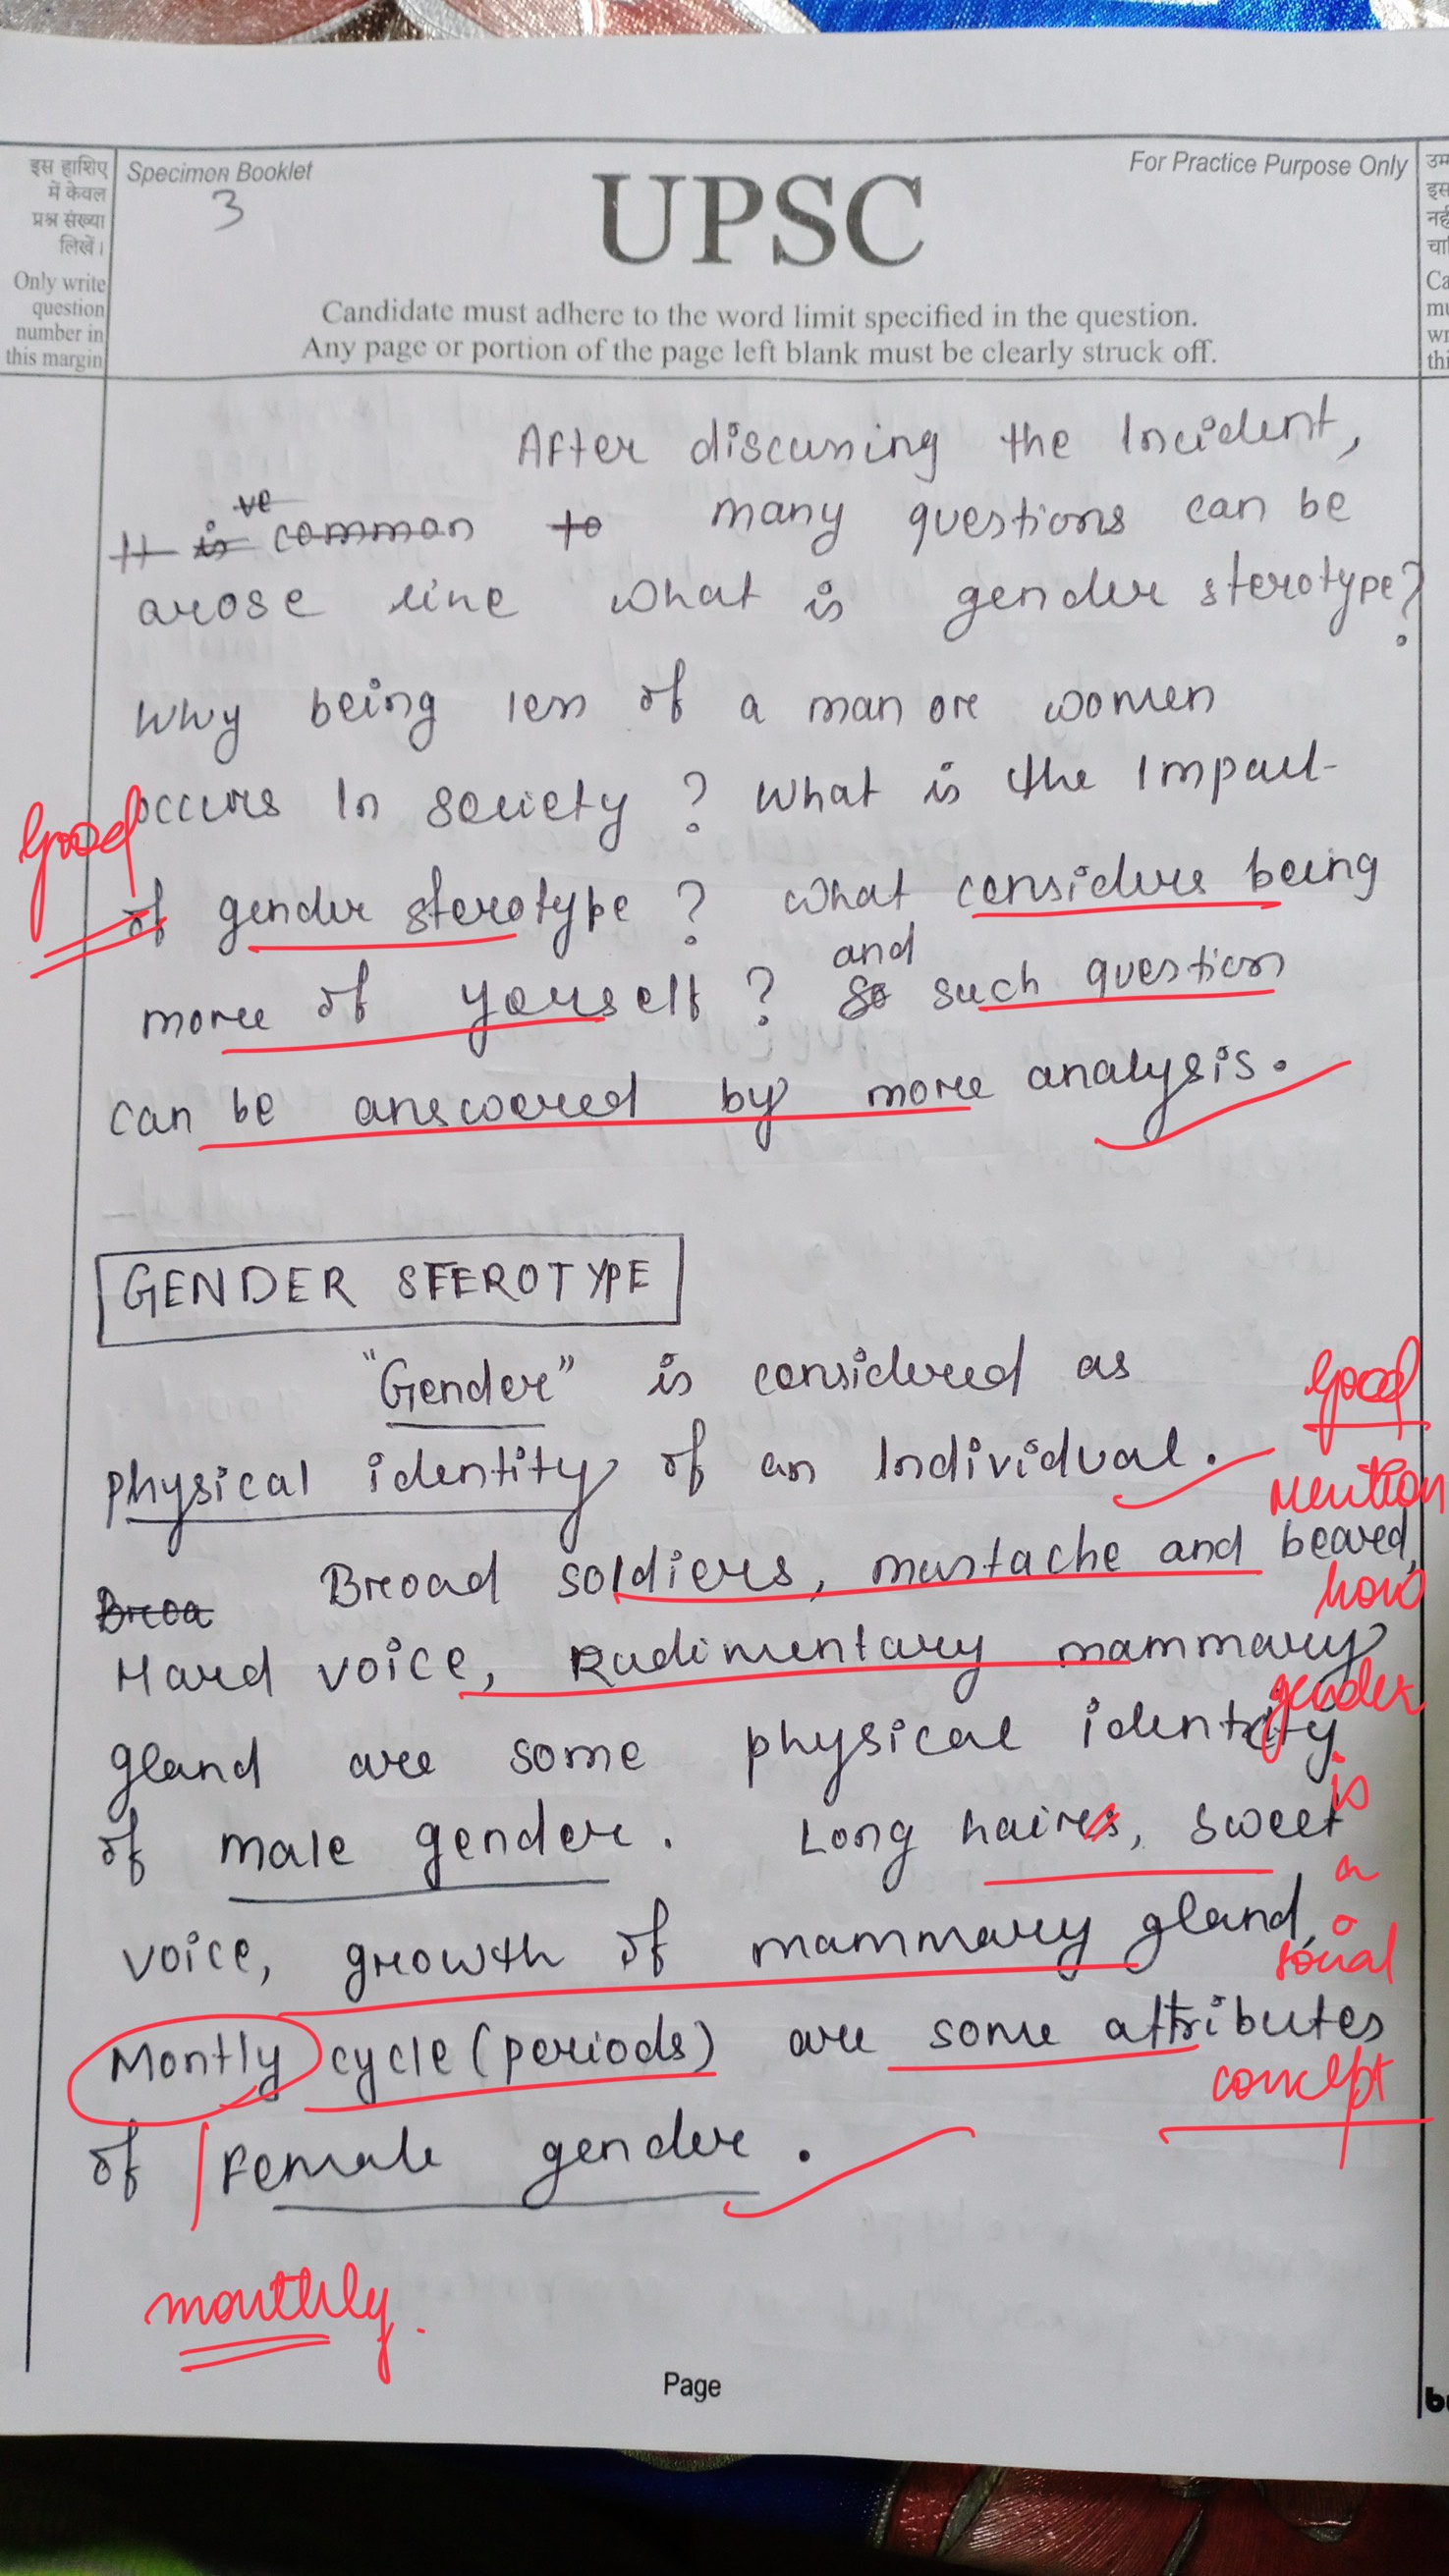 इस हाशिए
में केवल
प्रश्न संख्या
लिखें।
Only write
question
number in
this margin
Specimen Booklet
3
UPSC
For Practice Purpose Only
Candidate must adhere to the word limit specified in the question.
Any page or portion of the page left blank must be clearly struck off.
उम
इस
नही
चा
Ca
mu
wr
thi
After discussing the Incident,
It is ve common to many questions can be
arose like what is gender sterotype?
Why being less of a man or women
occurs In society? What is the Impact
Good
of gender sterotype? What considers being
more of yourself? So and such question
can be answered by more analysis.
GENDER STEROTYPE
"Gender" is considered as
physical identity of an Individual.
Broa Broad soldiers, mustache and beared,
Hard voice, Rudimentary mammary
gland are some physical identity
of male gender. Long hairs, sweet
voice, growth of mammary gland,
Montly cycle (periods) are some attributes
of Female gender.
Good
mention
how
gender
is
a
social
concept
monthly.
Page